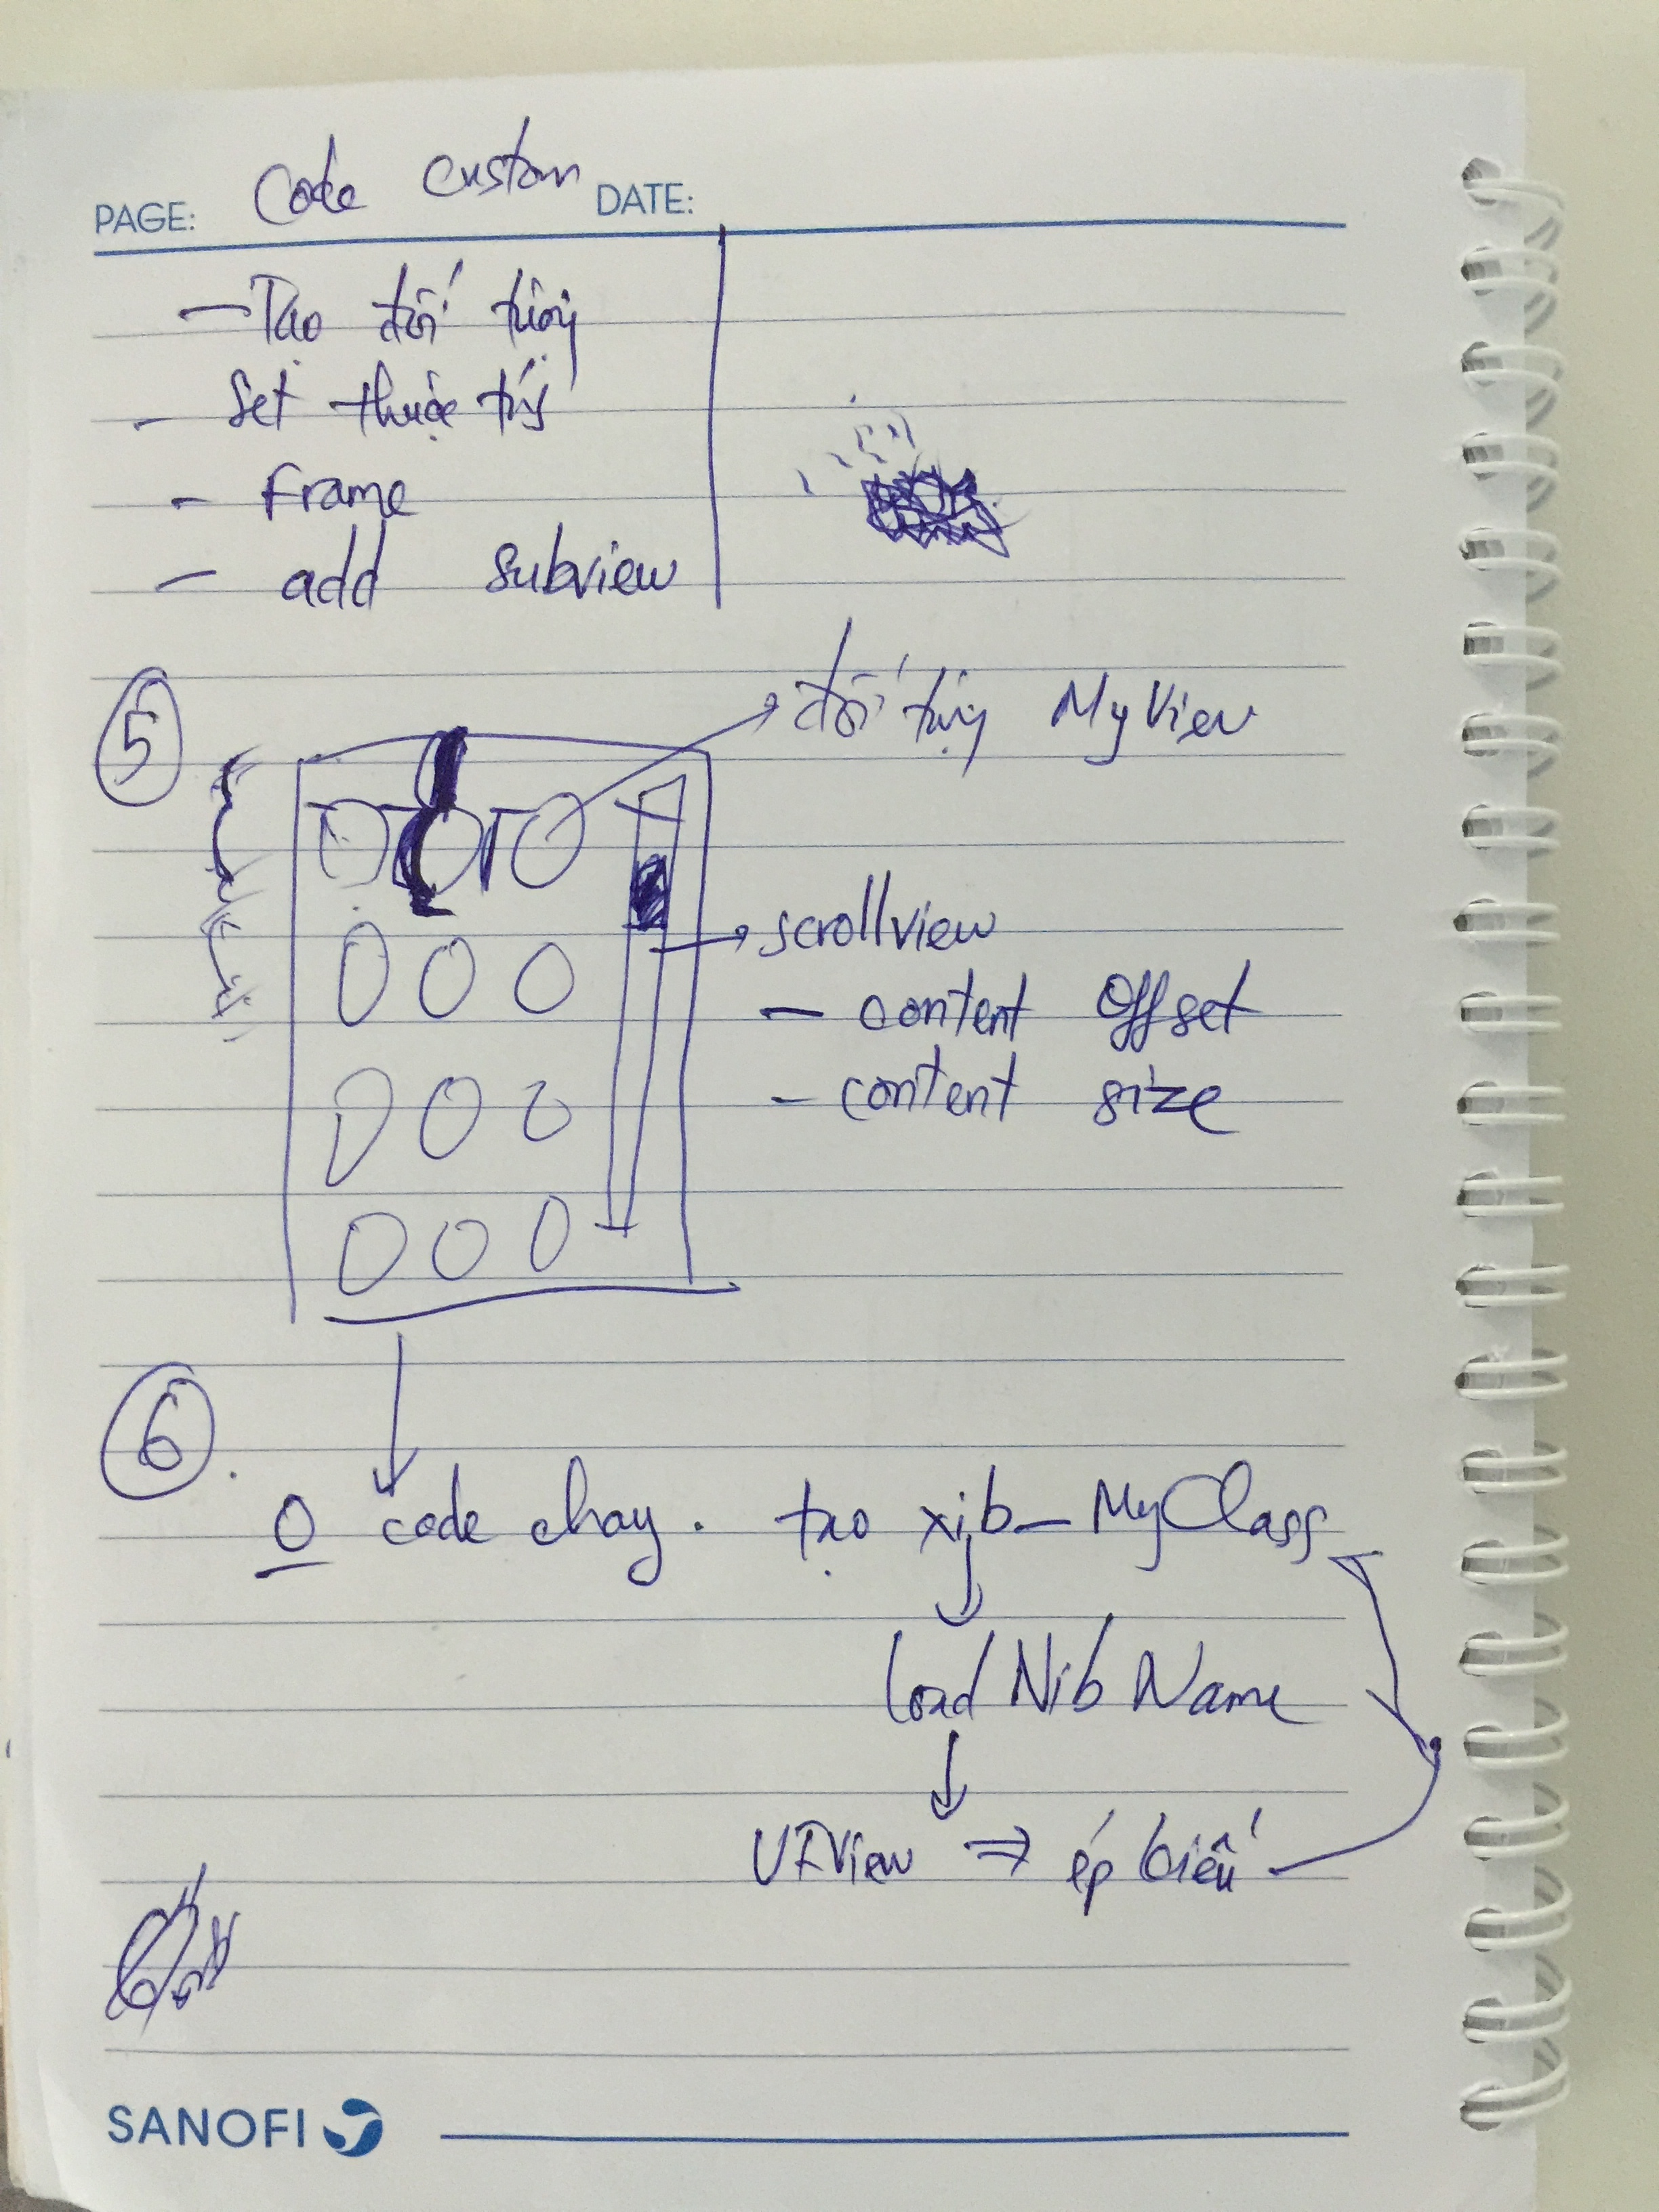 PAGE: Code custom DATE:
- Tạo đối tượng
- Set thuộc tính
- Frame
- add subview
5
đối tượng MyView
scrollview
- content Offset
- content size
6
0 code chay. tạo xib_MyClass
load Nib Name
UIView => ép biến
SANOFI